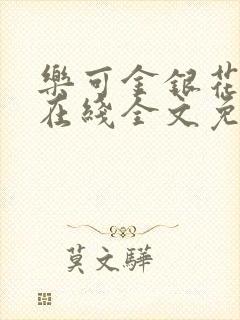 樂可金銀花
在綫全文免
莫文驊